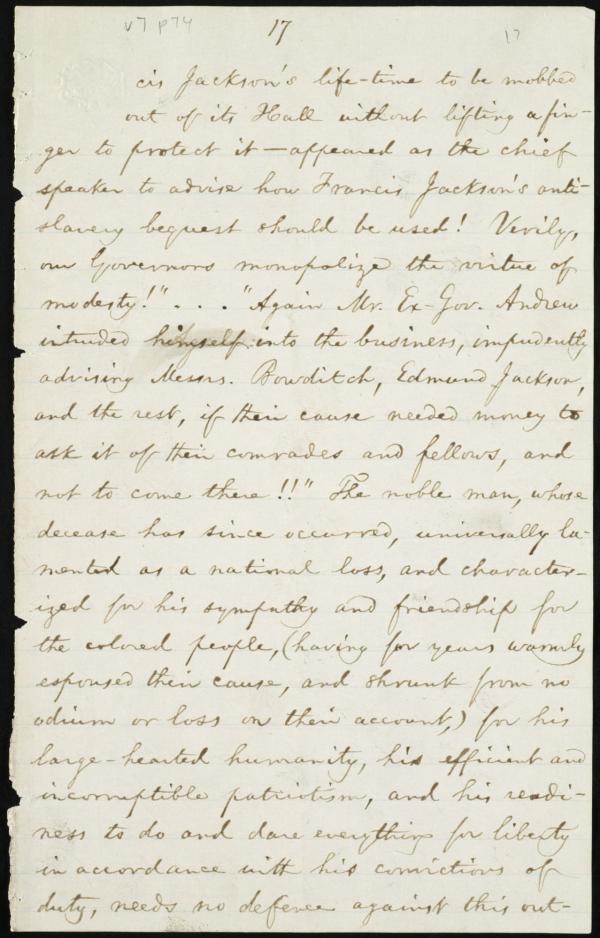 v7 p74
17
17
cis Jackson's life-time to be mobbed
out of its Hall without lifting a fin-
ger to protect it — appeared as the chief
speaker to advise how Francis Jackson's anti-
slavery bequest should be used! Verily,
our Governors monopolize the virtue of
modesty!" . . . "Again Mr. Ex-Gov. Andrew
intruded himself into the business, impudently
advising Messrs. Bowditch, Edmund Jackson,
and the rest, if their cause needed money to
ask it of their comrades and fellows, and
not to come there!!" The noble man, whose
decease has since occurred, universally la-
mented as a national loss, and character-
ized for his sympathy and friendship for
the colored people, (having for years warmly
espoused their cause, and shrunk from no
odium or loss on their account,) for his
large-hearted humanity, his efficient and
incorruptible patriotism, and his readi-
ness to do and dare everything for liberty
in accordance with his convictions of
duty, needs no defence against this out-